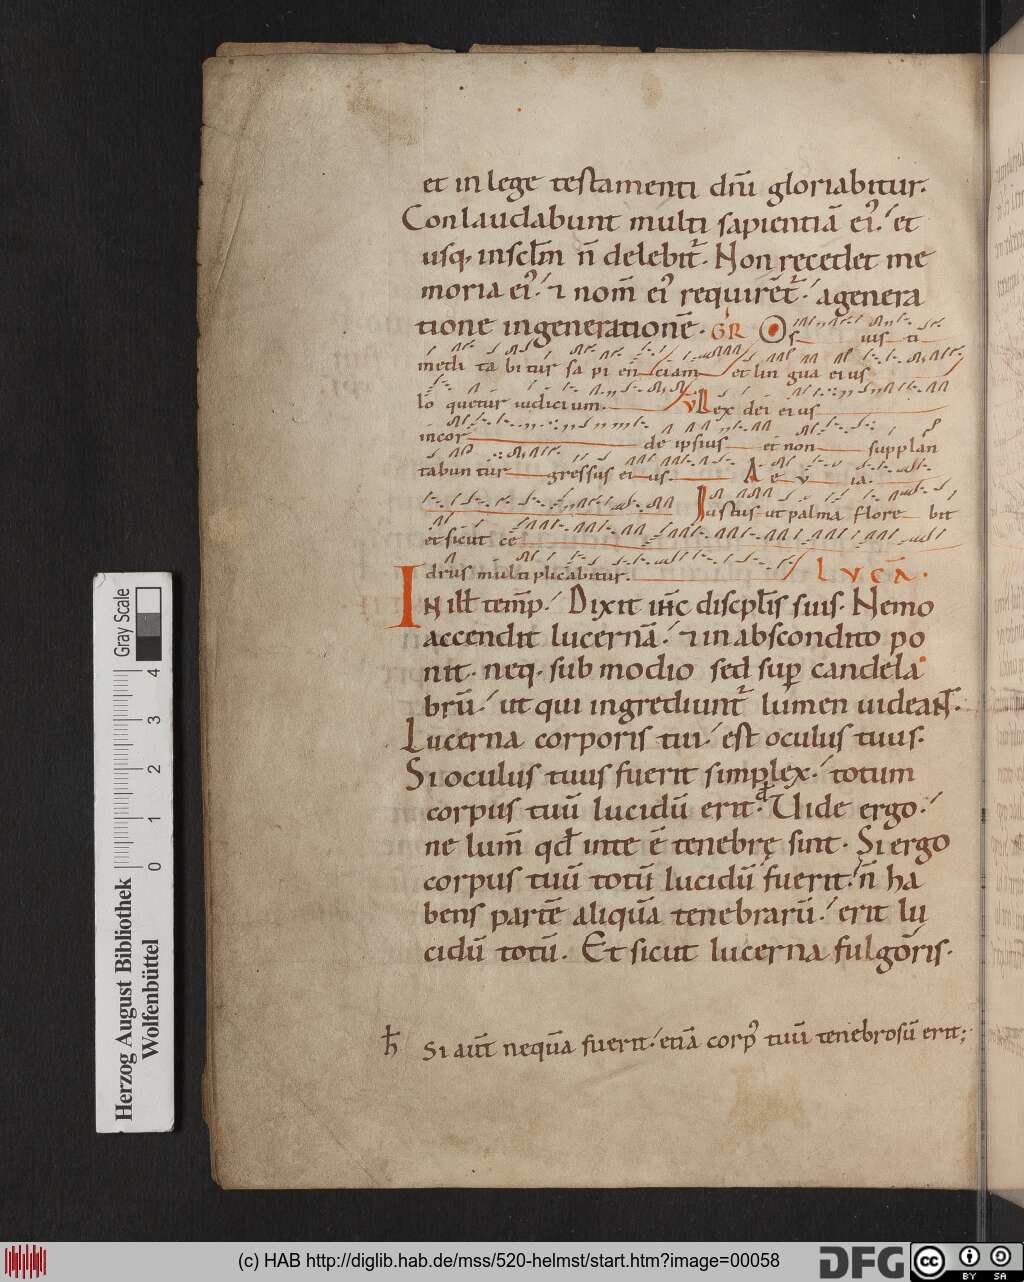 et in lege testamenti dn̄i gloriabitur.
Conlaudabunt multi sapientiā ei᾿. et
usq. insc̄lm n̄ delebit᷑. Non recedet me
moria ei᾿. ⁊ nom̄ ei᾿ requirēt᷑. a genera
tione in generationē. GR Os ius ti
medi ta bi tur sa pi en ciam et lin gua eius
lo quetur iudicium. V Lex dei eius
in cor de ipsius et non supplan
tabun tur gressus ei us. A e v ia.
Iustus ut palma flore bit
et sicut ce
drus multiplicabitur. LVCĀ.
IN ill̄ temp̄. Dixit ih̄c discpl̄is suis. Nemo
accendit lucernā. ⁊ in abscondito po
nit. neq. sub modio sed sup̄ candela
brū. ut qui ingrediunt᷑ lumen uideaNT.
Lucerna corporis tui. est oculus tuus.
Si oculus tuus fuerit simplex. totum
corpus tuū lucidū erit. Uide ergo.
ne lum̄ qd̄ in te ē tenebrę sint. Si ergo
corpus tuū totū lucidū fuerit. n̄ ha
bens partē aliquā tenebrarū. erit lu
cidū totū. Et sicut lucerna fulgōris.
ħ Si aut̄ nequā fuerit. etiā corp᾿ tuū tenebrosū erit;
Gray Scale
4 3 2 1 0
Herzog August Bibliothek
Wolfenbüttel
(c) HAB http://diglib.hab.de/mss/520-helmst/start.htm?image=00058
DFG
cc BY SA